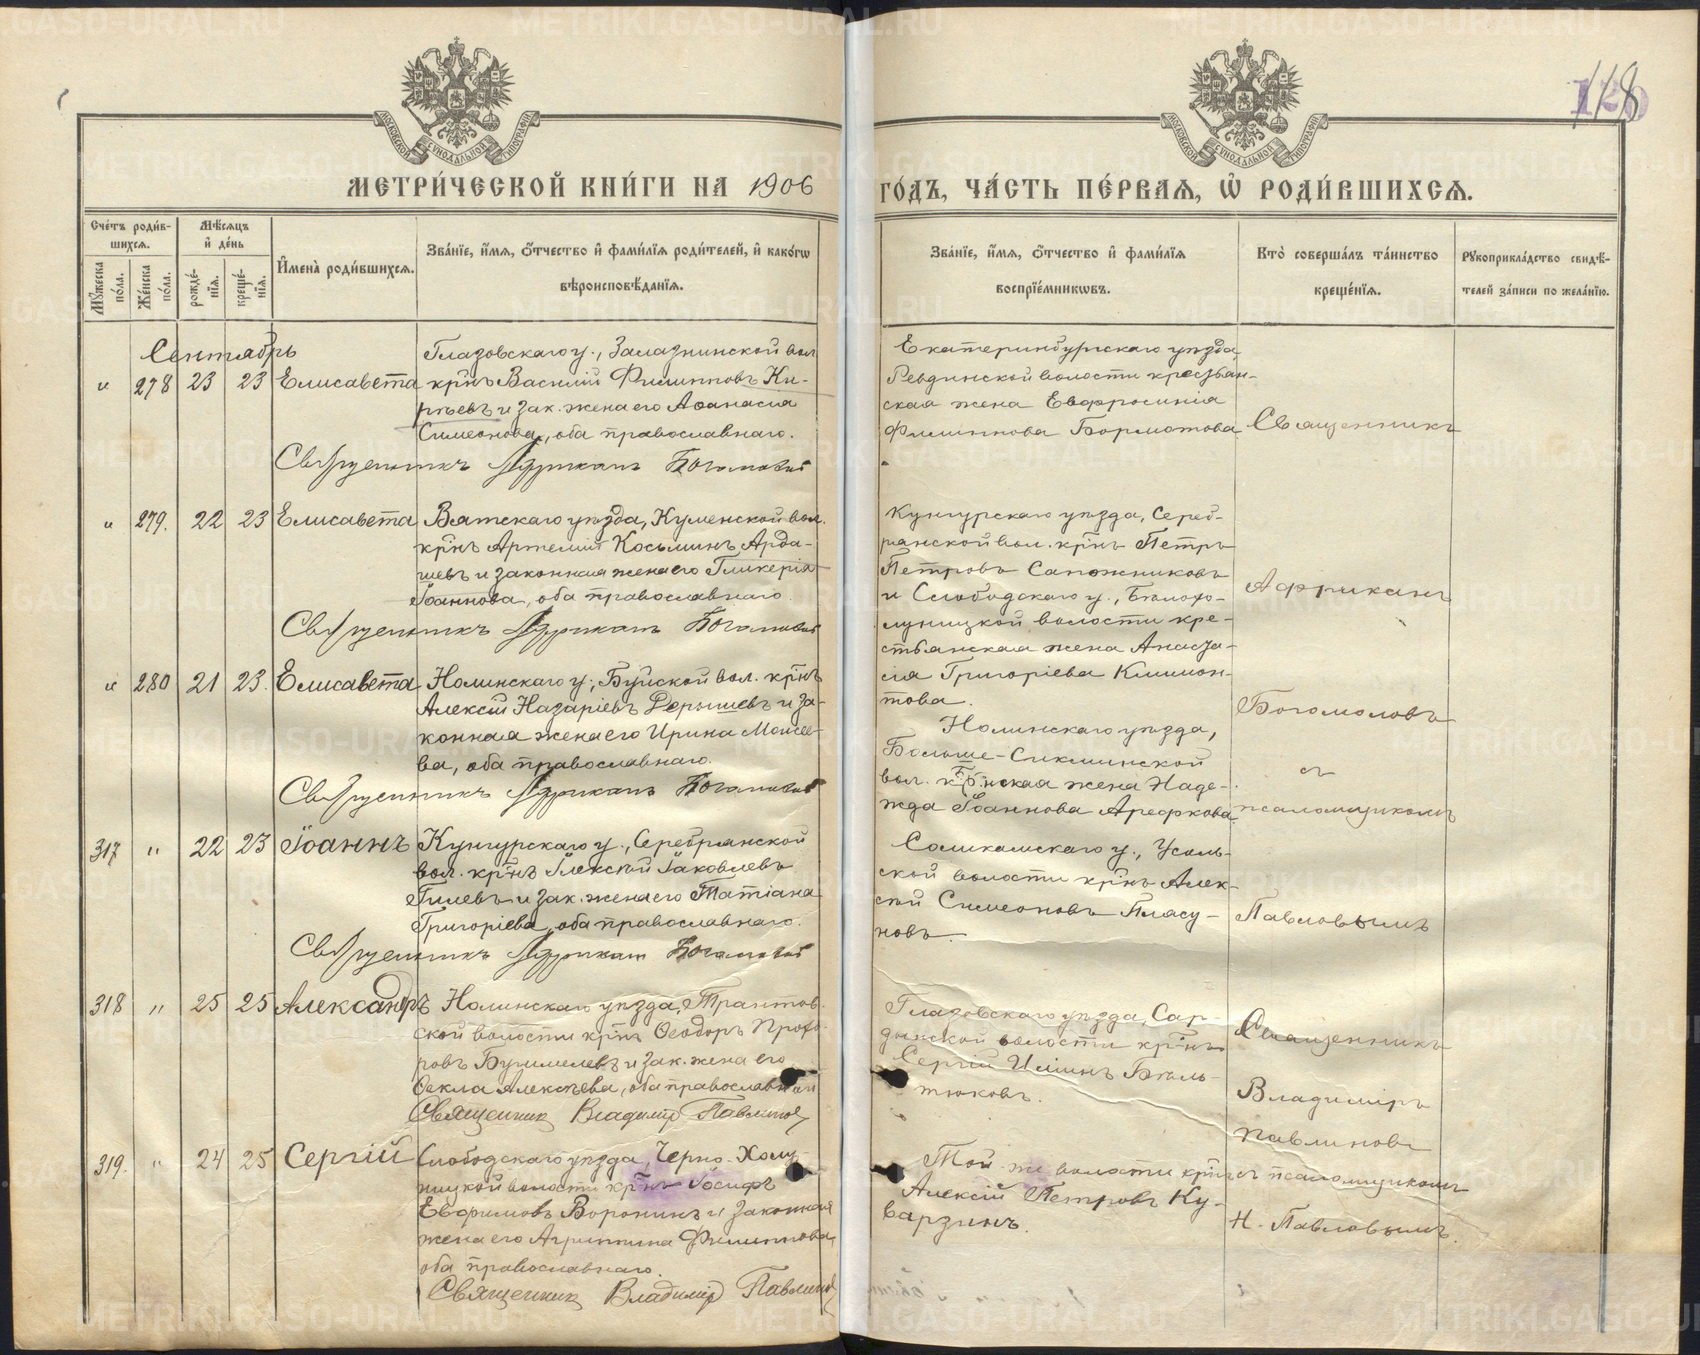 118
МЕТРИ́ЧЕСКОЙ КНИ́ГИ НА 1906 ГО́ДЪ, ЧА́СТЬ ПЕ́РВАЯ, Ѡ҆ РОДИ́ВШИХСЯ.
Сче́тъ роди́в-
шихся.
Мꙋ́жеска по́ла.
Же́нска по́ла.
Мѣ́сяцъ и҆ де́нь
рожде́-
нїя.
креще́-
нїя.
И҆мена̀ роди́вшихся.
Зва́нїе, и҆́мя, ѻ҆́тчество и҆ фами́лїя роди́телей, и҆ како́гѡ
вѣроисповѣ́данїя.
Зва́нїе, и҆́мя, ѻ҆́тчество и҆ фами́лїя
воспрїе́мникѡвъ.
Кто̀ соверша́лъ та́инство
креще́нїя.
Рꙋкоприкла́дство свидѣ́-
телей за́писи по жела́нїю.
Сентябрь
" 278 23 23 Елисавета
Глазовскаго у., Залазнинской вол.
кр̃нъ Василій Филипповъ Ки-
рѣевъ и зак. жена его Аѳанасia
Симеонова, оба православнаго.
Священникъ Африканъ Богомоловъ
Екатеринбургскаго уѣзда
Ревдинской волости крестьян-
ская жена Евфросинія
Филиппова Бормотова
Священникъ
" 279. 22 23 Елисавета
Вятскаго уѣзда, Куменской вол.
кр̃нъ Артемій Косьминъ Арда-
шевъ и законная жена его Гликерія
Іоаннова, оба православнаго.
Священникъ Африканъ Богомоловъ
Кунгурскаго уѣзда, Сереб-
рянской вол. кр̃нъ Петръ
Петровъ Сапожниковъ
и Слободскаго у., Бѣлохо-
луницкой волости кре-
стьянская жена Анаста-
сія Григоріева Климон-
това.
Африканъ
" 280 21 23. Елисавета
Нолинскаго у., Буйской вол. кр̃нъ
Алексій Назаріевъ Дерышевъ и за-
конная жена его Ирина Моисее-
ва, оба православнаго.
Священникъ Африканъ Богомоловъ
Нолинскаго уѣзда,
Больше-Сикминской
вол. кр̃нская жена Наде-
жда Іоаннова Арефкова.
Богомоловъ
съ
псаломщикомъ
317 " 22 23 Іоаннъ
Кунгурскаго у., Серебрянской
вол. кр̃нъ Алексѣй Іаковлевъ
Гилевъ и зак. жена его Татіана
Григоріева, оба православнаго.
Священникъ Африканъ Богомоловъ
Соликамскаго у., Усоль-
ской волости кр̃нъ Алек-
сѣй Симеоновъ Плясу-
новъ.
Павловымъ
318 " 25 25 Александръ
Нолинскаго уѣзда,
ской волости кр̃нъ Ѳеодоръ Прохо-
ровъ и зак. жена его
Ѳекла Алексѣева, оба православнаго
Священник Владимiр Павлинов
Глазовскаго уѣзда, Сар-
дынской волости кр̃нъ
Сергій Илiинъ Бѣль-
тюковъ.
Священникъ
Владимиръ
Павлиновъ
319. " 24 25 Сергій
Слободскаго уѣзда, Черно-Холу-
ницкой волости кр̃нъ Іосифъ
Евфимовъ Воронинъ и законная
жена его Агриппина Филиппова,
оба православнаго.
Священник Владимiр Павлинов
Той-же волости кр̃нъ
Алексій Петровъ Ку-
варзинъ.
съ псаломщикомъ
Н. Павловымъ.